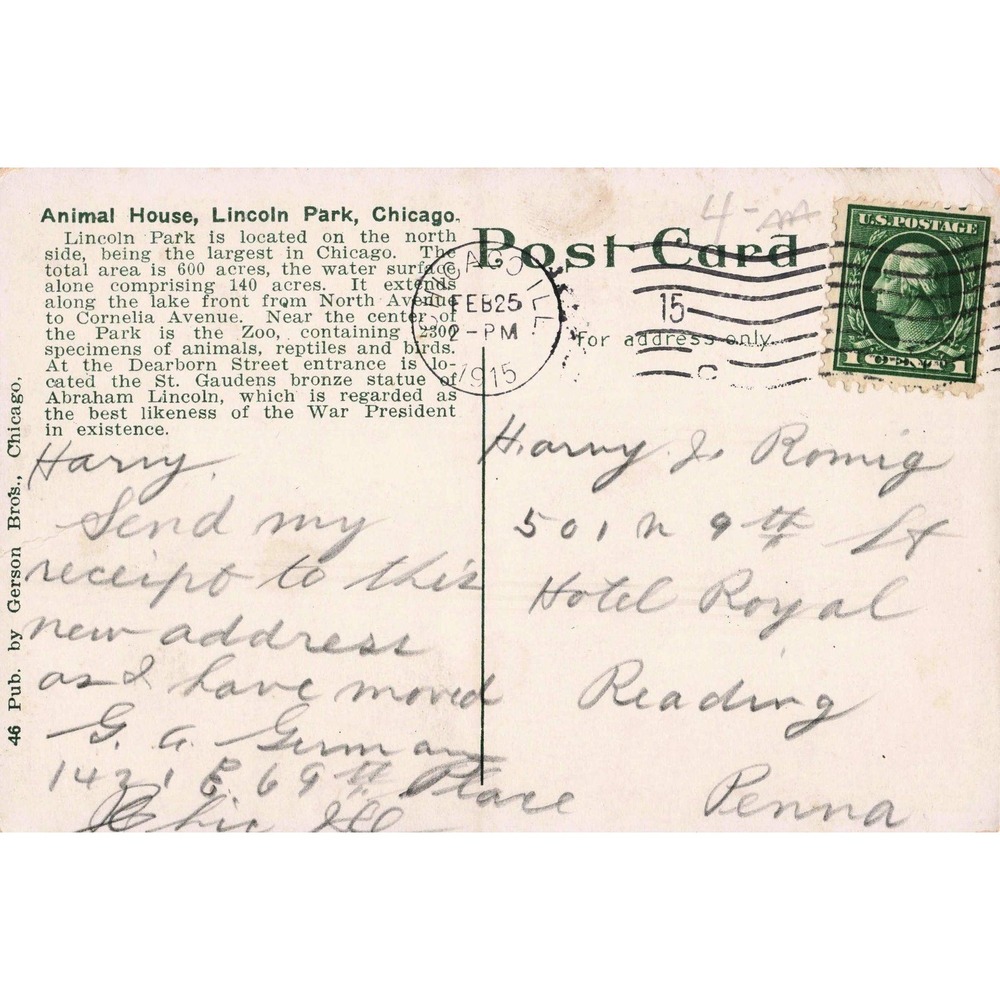 Animal House, Lincoln Park, Chicago.
Lincoln Park is located on the north
side, being the largest in Chicago. The
total area is 600 acres, the water surface
alone comprising 140 acres. It extends
along the lake front from North Avenue
to Cornelia Avenue. Near the center of
the Park is the Zoo, containing 2300
specimens of animals, reptiles and birds.
At the Dearborn Street entrance is lo-
cated the St. Gaudens bronze statue of
Abraham Lincoln, which is regarded as
the best likeness of the War President
in existence.
46 Pub. by Gerson Bro's., Chicago.
Post Card
for address only.
4- AA
CHICAGO ILL
FEB 25
2-PM
1915
15
C
U.S. POSTAGE
1 CENT 1
Harry.
Send my
receipt to this
new address
as I have moved
G. A. German
1421 E 69th Place
Chic Ill
Harvy J. Romig
501 N 9th St
Hotel Royal
Reading
Penna